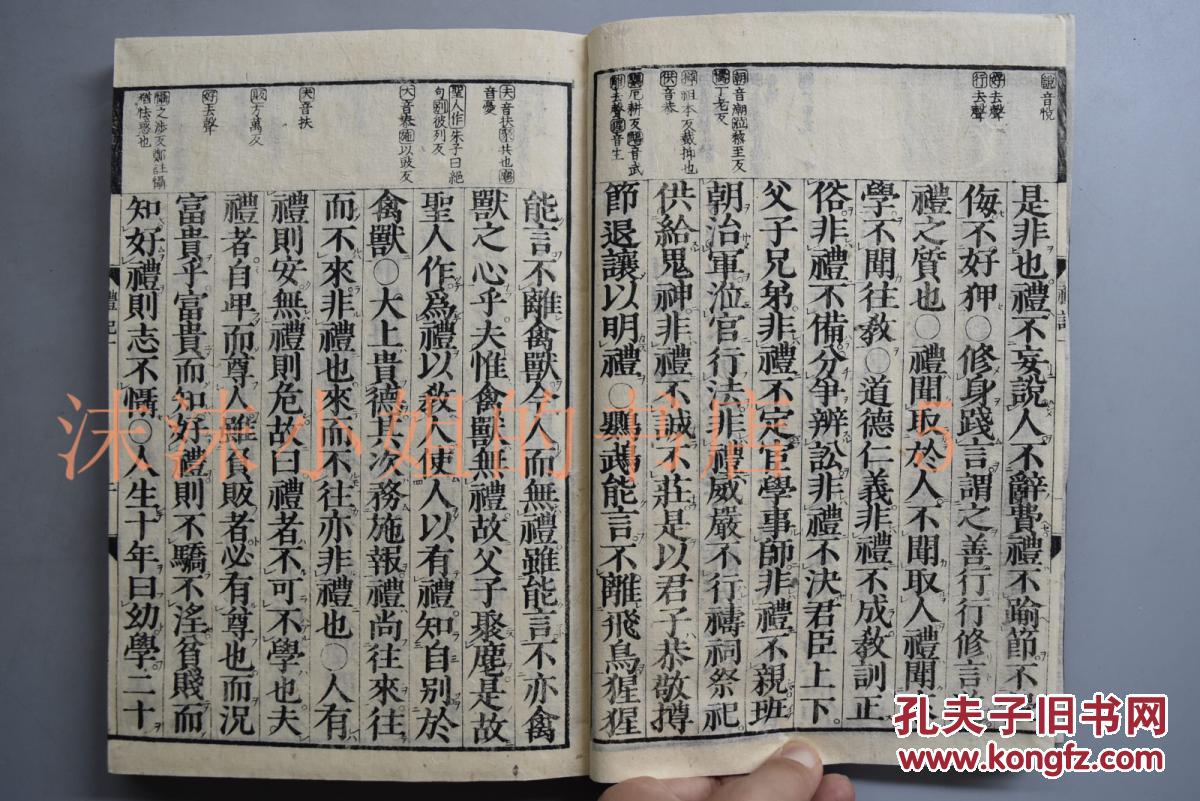 說音悅
好去聲
行去聲
朝音潮涖黎至反
禱丁老反
祠祖本反裁抑也
供音恭
鸚厄耕反鵡音武
離去聲猩音生
是非也禮不妄說人不辭費禮不踰節不
侮不好狎○修身踐言謂之善行行修言
禮之質也○禮聞取於人不聞取人禮聞
學不聞往敎○道德仁義非禮不成敎訓正
俗非禮不備分爭辨訟非禮不決君臣上下
父子兄弟非禮不定宦學事師非禮不親班
朝治軍涖官行法非禮威嚴不行禱祠祭祀
供給鬼神非禮不誠不莊是以君子恭敬撙
節退讓以明禮○鸚鵡能言不離飛鳥猩猩
夫音扶聚共也麀
音憂
聖人作朱子曰絕
句別彼列反
大音泰施以豉反
夫音扶
販方萬反
好去聲
懾之涉反鄭註懾
猶怯惑也
能言不離禽獸今人而無禮雖能言不亦禽
獸之心乎夫惟禽獸無禮故父子聚麀是故
聖人作爲禮以敎人使人以有禮知自別於
禽獸○大上貴德其次務施報禮尚往來往
而不來非禮也來而不往亦非禮也○人有
禮則安無禮則危故曰禮者不可不學也夫
禮者自卑而尊人雖負販者必有尊也而況
富貴乎富貴而知好禮則不驕不淫貧賤而
知好禮則志不懾○人生十年曰幼學二十
禮記
沫沫小姐的书店 5
孔夫子旧书网
www.kongfz.com